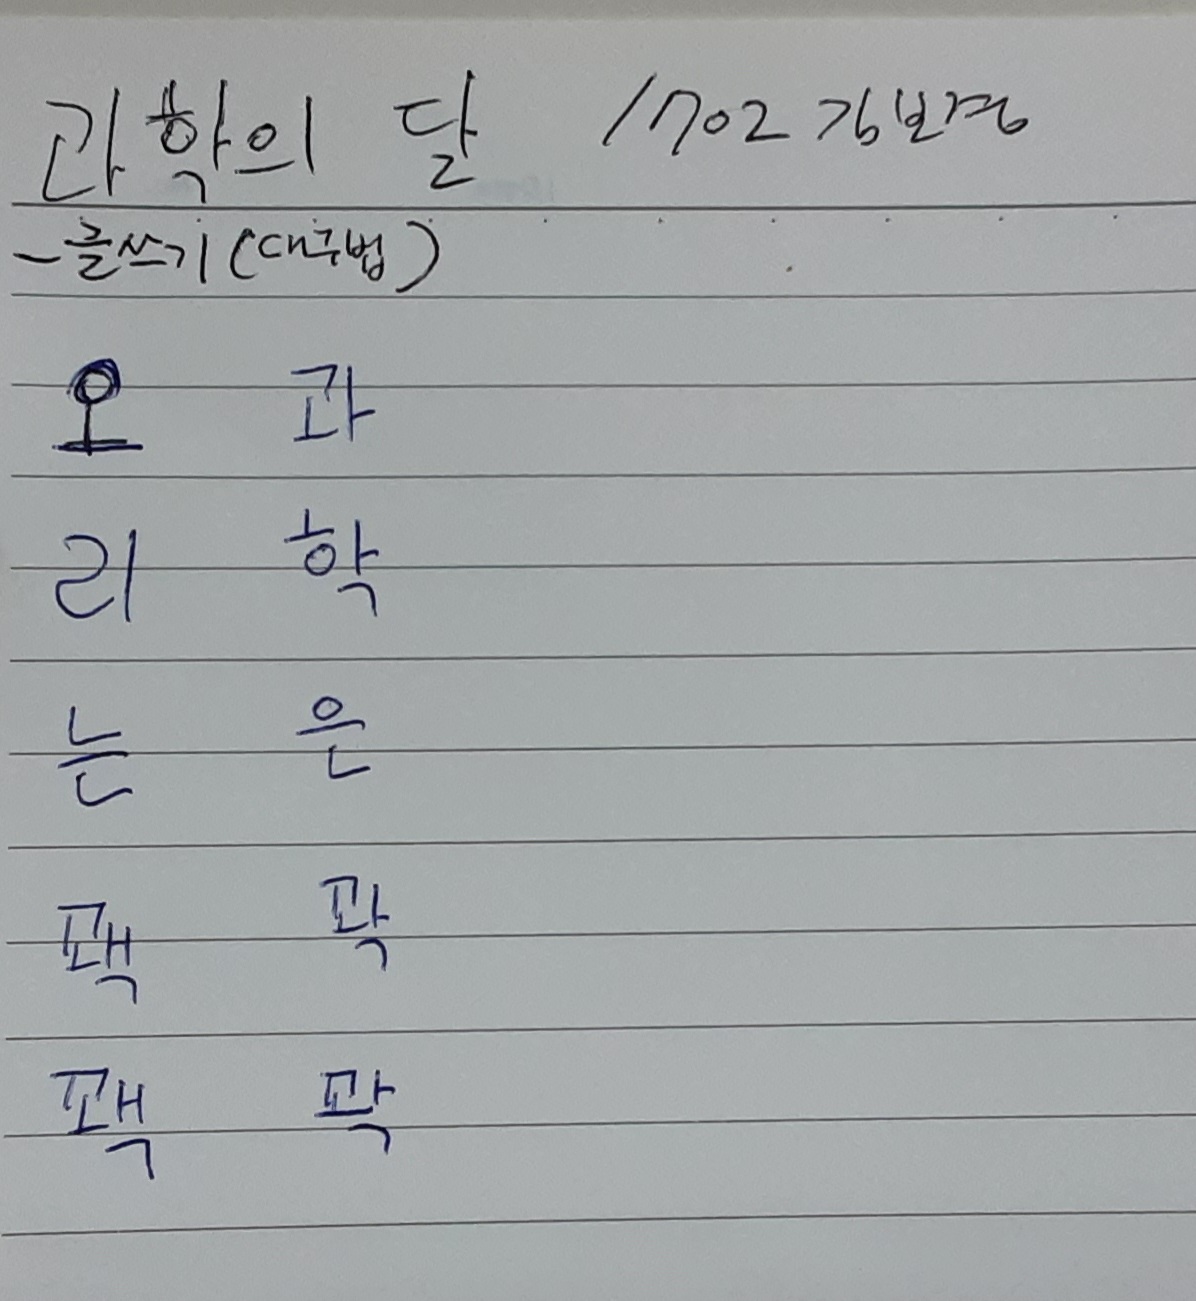 과학의 달 1702 김보경
-글쓰기(대구법)
오 과
리 학
는 은
꽥 꽉
꽥 꽉